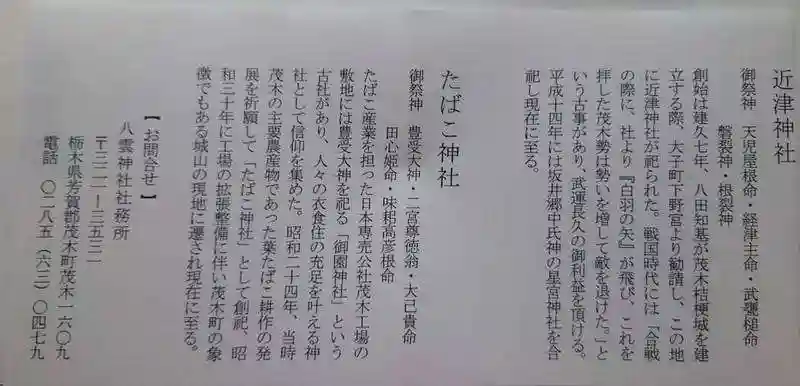 近津神社
御祭神　天児屋根命・経津主命・武甕槌命
磐裂神・根裂神
創始は建久七年、八田知基が茂木桔梗城を建
立する際、大子町下野宮より勧請し、この地
に近津神社が祀られた。戦国時代には、「合戦
の際に、社より『白羽の矢』が飛び、これを
拝した茂木勢は勢いを増して敵を退けた。」と
いう古事があり、武運長久の御利益を頂ける。
平成十四年には坂井郷中氏神の星宮神社を合
祀し現在に至る。
たばこ神社
御祭神　豊受大神・二宮尊徳翁・大己貴命
田心姫命・味耜高彦根命
たばこ産業を担った日本専売公社茂木工場の
敷地には豊受大神を祀る「御園神社」という
古社があり、人々の衣食住の充足を叶える神
社として信仰を集めた。昭和二十四年、当時
茂木の主要農産物であった葉たばこ耕作の発
展を祈願して「たばこ神社」として創祀、昭
和三十年に工場の拡張整備に伴い茂木町の象
徴でもある城山の現地に遷され現在に至る。
【お問合せ】
八雲神社社務所
〒三二一―三五三一
栃木県芳賀郡茂木町茂木一六〇九
電話　〇二八五（六三）〇四七九